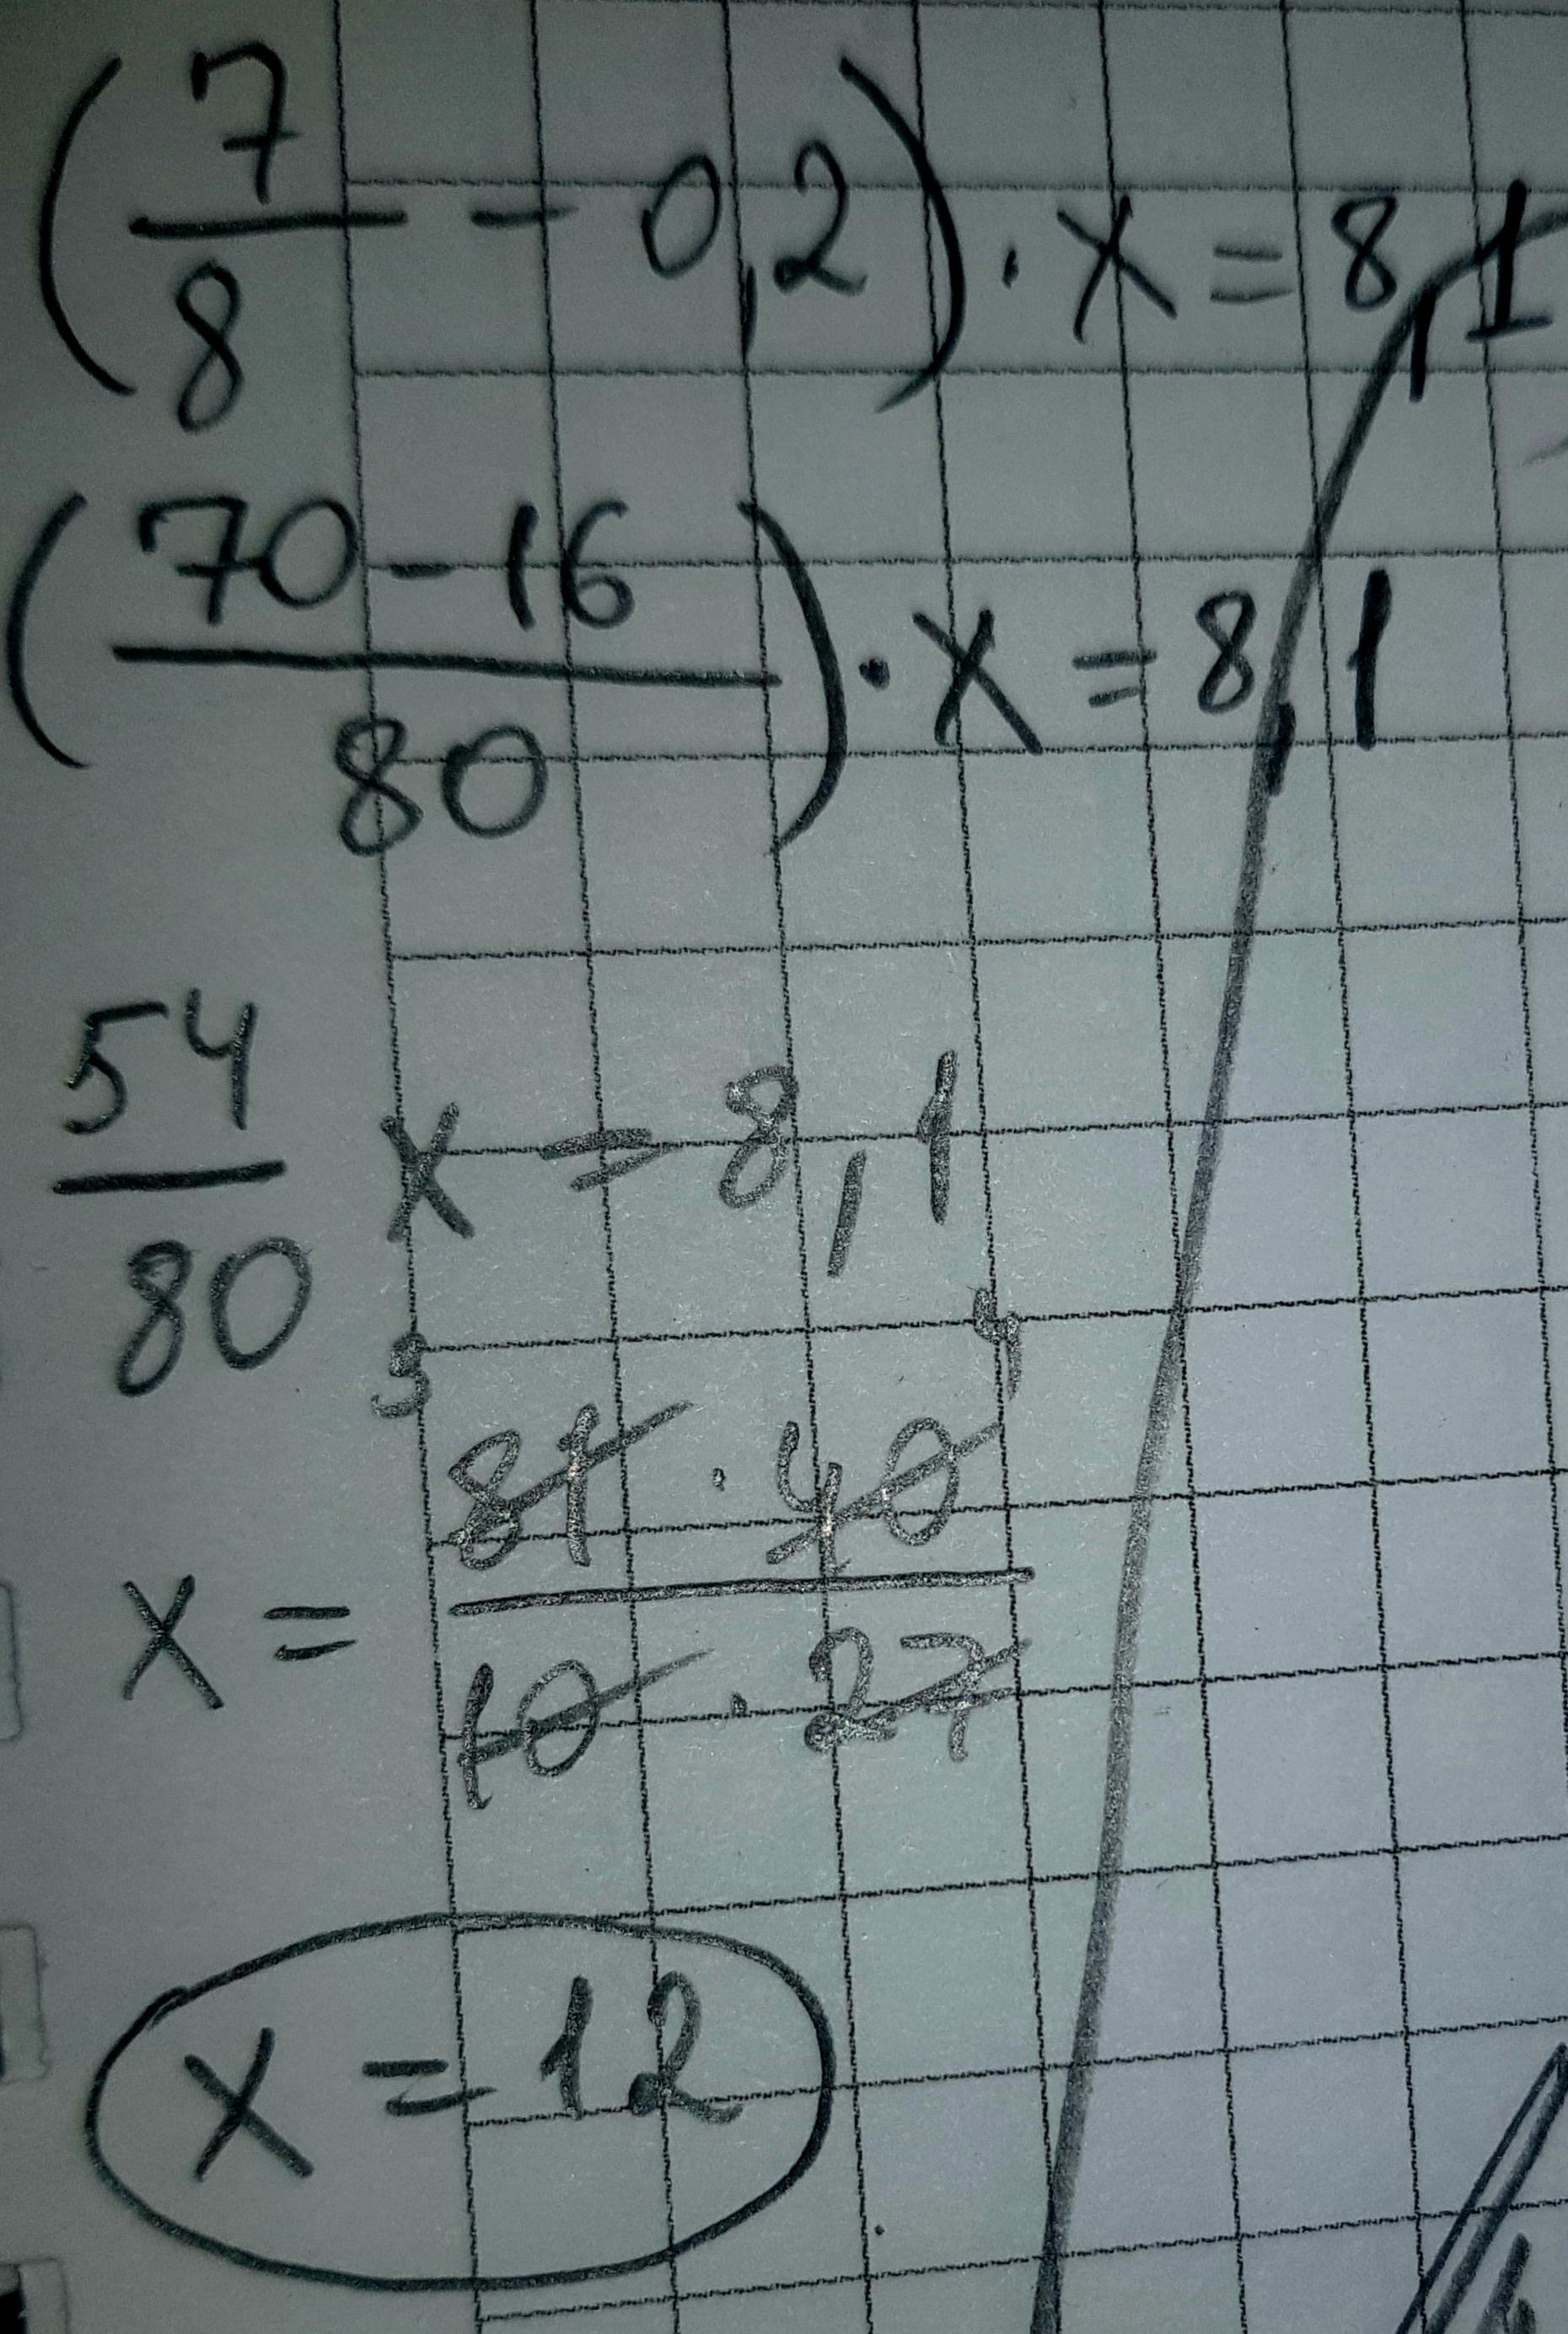 (7/8 - 0,2) · x = 8,1
(70 - 16 / 80) · x = 8,1
54/80 x = 8,1
x = 81 · 40 / 10 · 27
3 4
x = 12